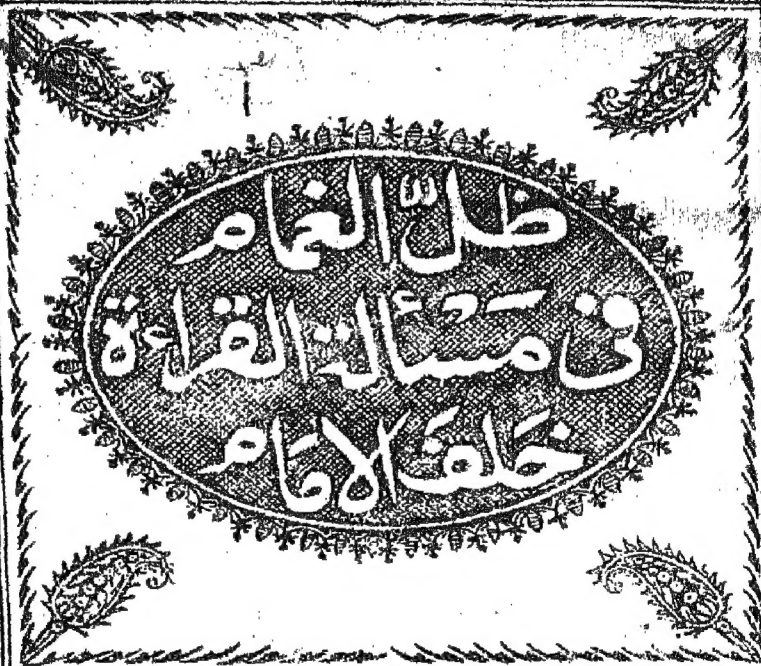 ظلّ الغمام
فى مَسْئَالة القراءة
خَلفَ الامَام